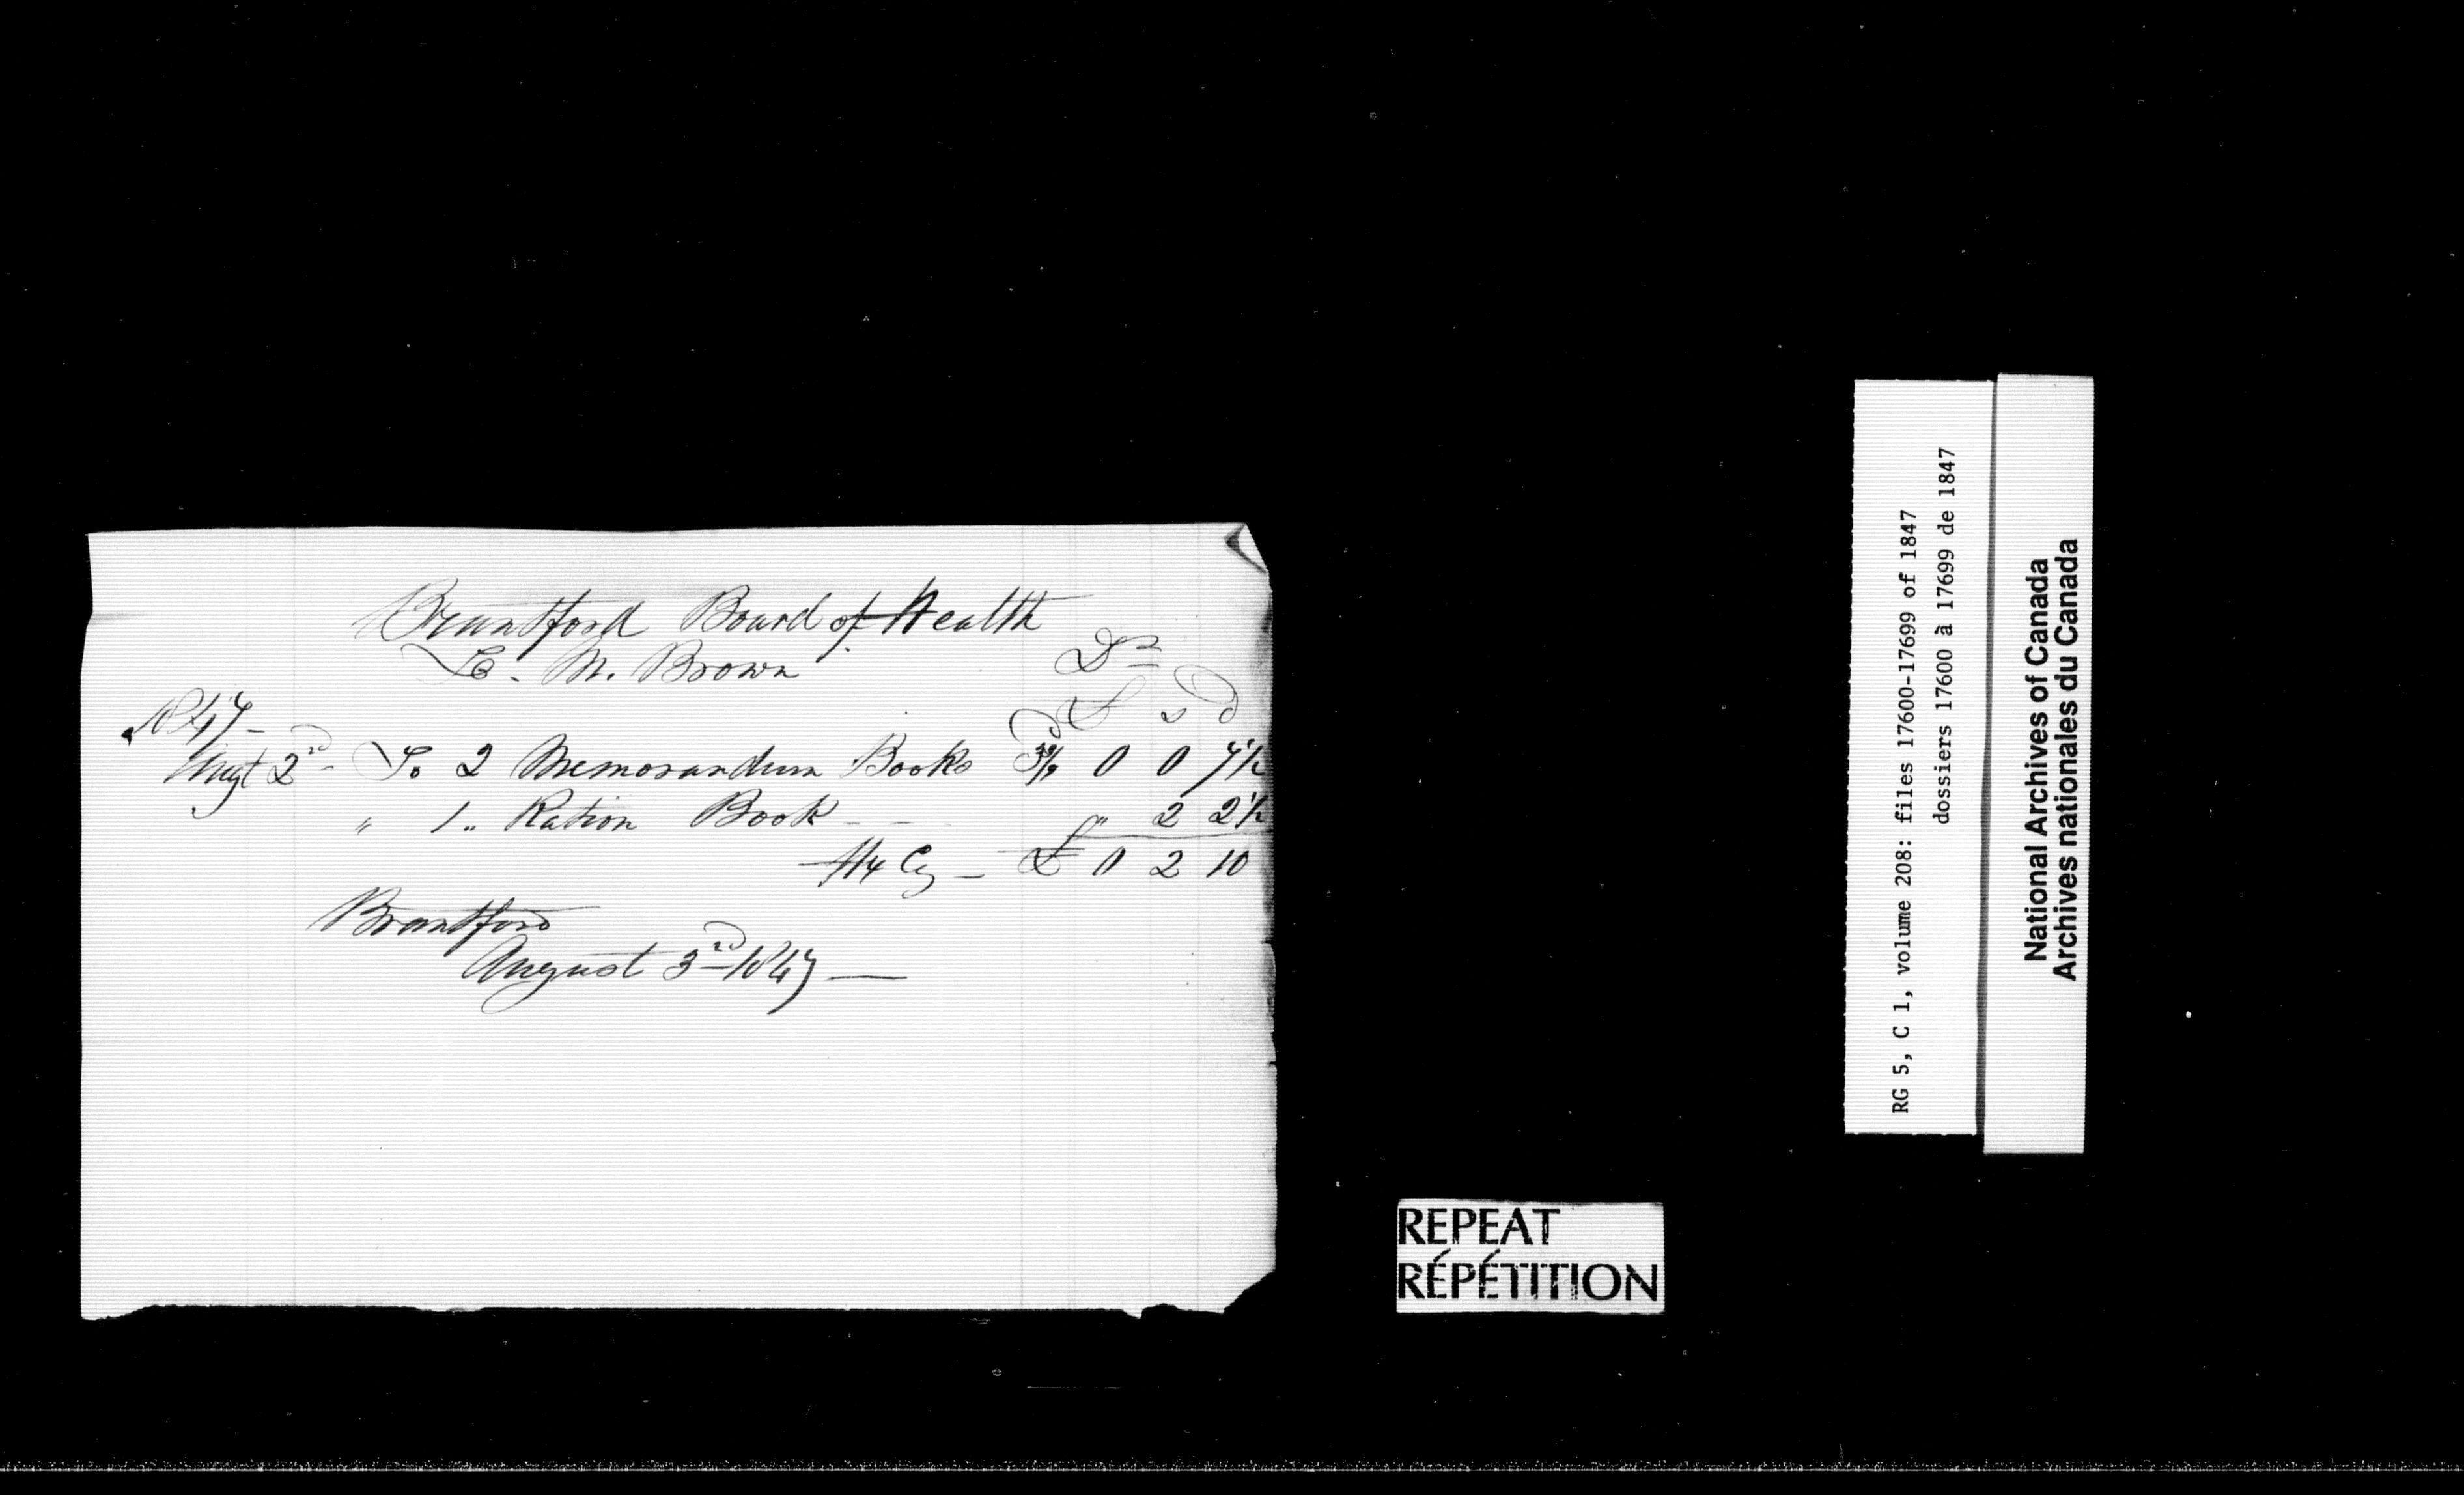 Brantford Board of Health
To. M. Brown Dr
£ s d
1847 -
Augt 2nd - To 2 Memorandum Books 0 0 7½
" 1 " Ration Book - - - " 2 2½
Cy - £ 0 2 10
Brantford
August 3rd 1847 —
RG 5, C 1, volume 208: files 17600-17699 of 1847
dossiers 17600 à 17699 de 1847
National Archives of Canada
Archives nationales du Canada
REPEAT
RÉPÉTITION